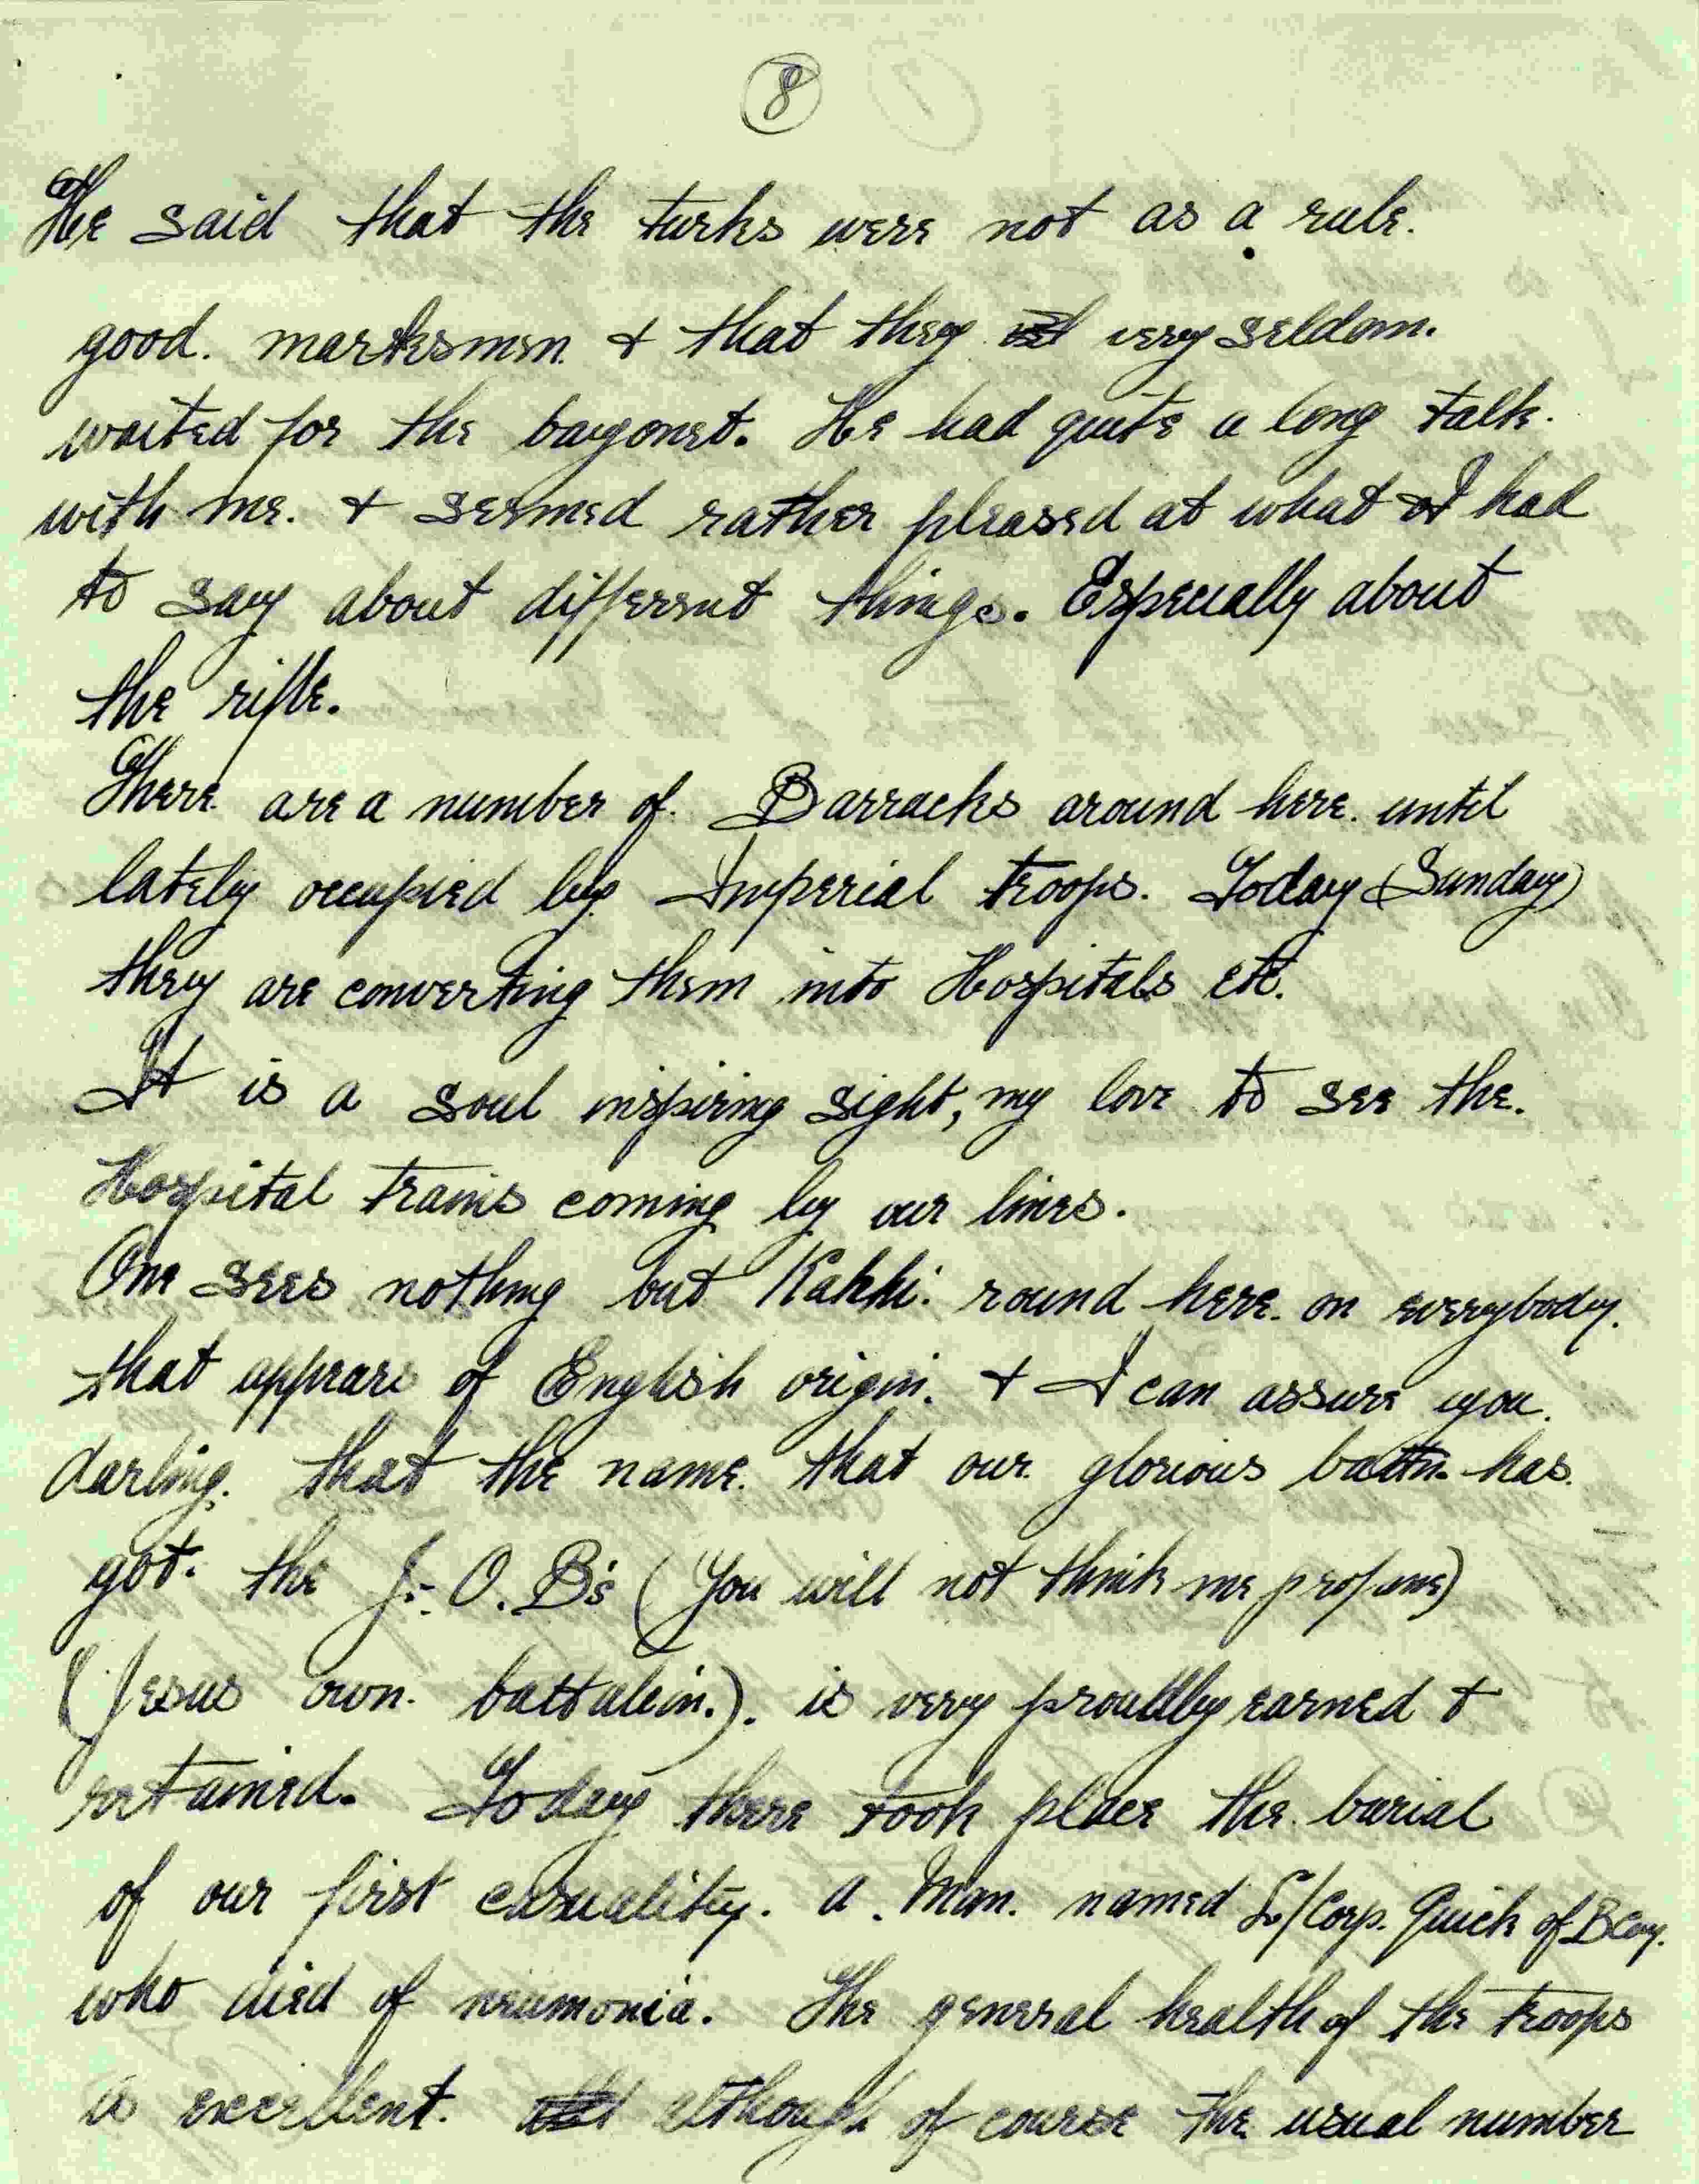 8
He said that the turks were not as a rule.
good. marksmen. & that they very seldom.
waited for the bayonet. He had quite a long talk.
with me. & seemed rather pleased at what I had
to say about different things. Especially about
the rifle.
There are a number of. Barracks around here. until
lately occupied by Imperial troops. Today (Sunday)
they are converting them into Hospitals etc.
It is a soul inspiring sight, my love to see the.
Hospital trains coming by our lines.
One sees nothing but Kahki. round here. on everybody.
that appears of English origin. & I can assure you.
darling. that the name. that our glorious battn. has.
got. the J. O. B's (You will not think me profane)
(Jesus own. battalein.). is very proudly earned &
retained. Today there took place the. burial
of our first casuality. a. Man. named L/Corp. Quick of B Coy.
who died of neumonia. The general health of the troops
is excellent. although of course the usual number